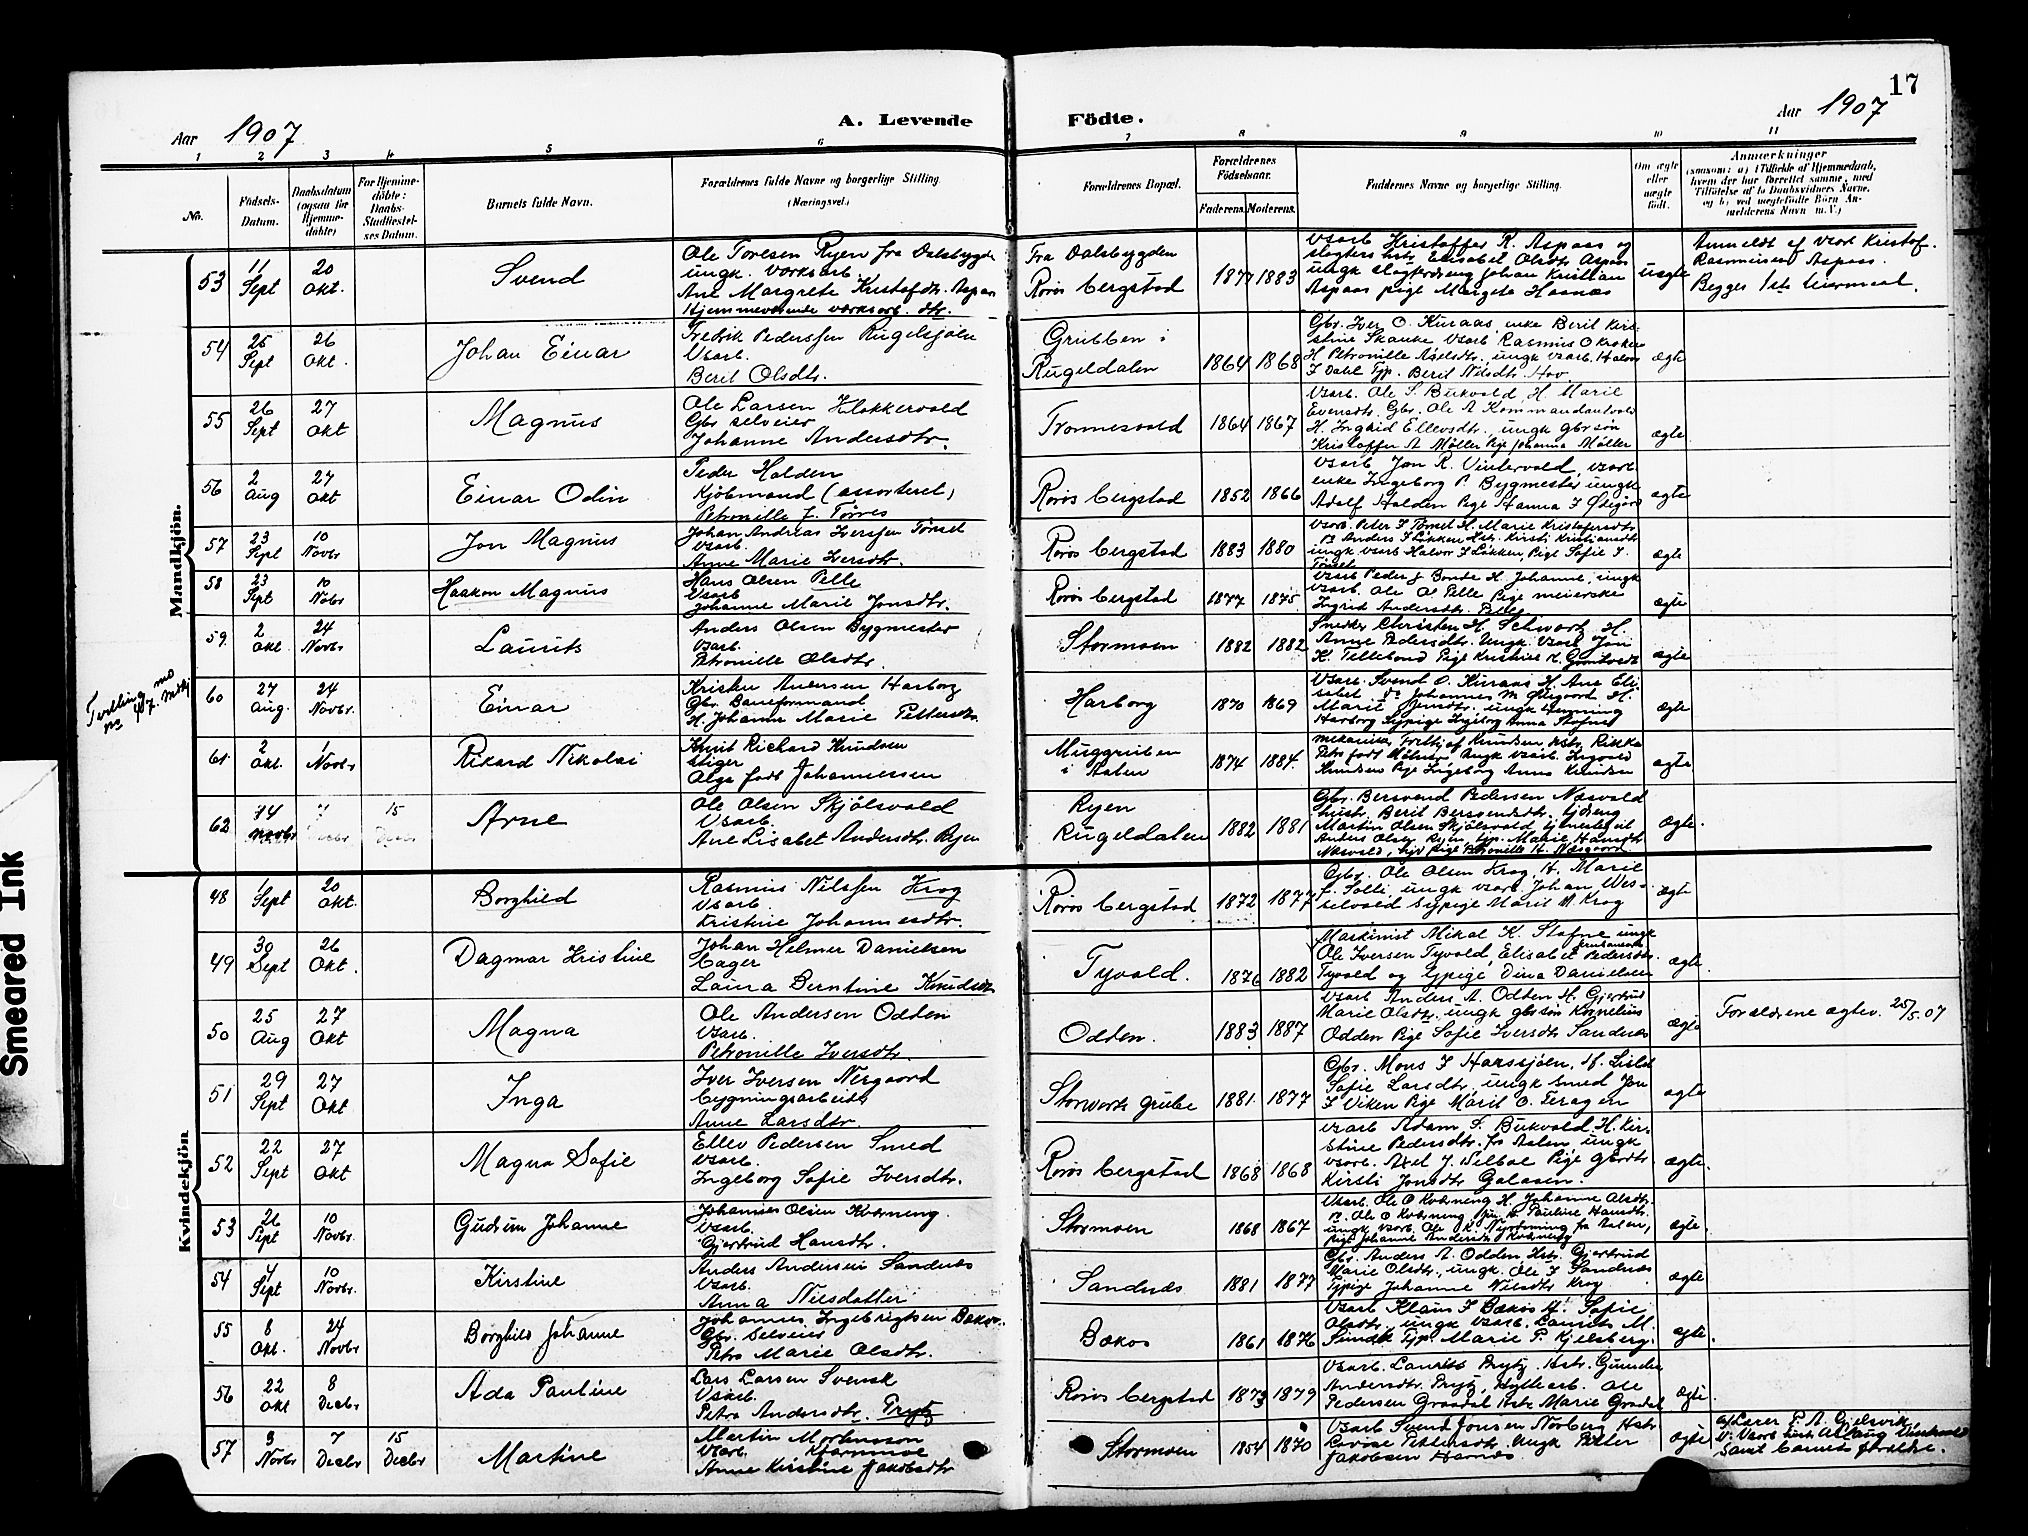 17
Aar 1907
A. Levende Födte.
Aar 1907
1 2 3 4 5 6 7 8 9 10 11
No.
Födsels-Datum.
Daabsdatum (ogsaa for Hjemmedöbte)
For Hjemmedöbte: Daabs-Stadfæstelses Datum.
Barnets fulde Navn.
Forældrenes fulde Navne og borgerlige Stilling (Næringsvei.)
Forældrenes Bopæl.
Forældrenes Födselsaar.
Faderens. Moderens.
Faddernes Navne og borgerlige Stilling.
Om ægte eller uægte födt.
Anmærkninger
(saasom: a) i Tilfælde af Hjemmedaab, hvem der har forrettet samme, med Tilföielse af to Daabsvidners Navne, og b) ved uægtefödte Börn Anmelderens Navn m. V.)
Mandkjön.
53 11 Sept 20 Okt. Svend
Ole Toresen Ryen fra Dalsbygde
ungk. værksarb.
Ane Margrete Kristofdtr. Aspaas
Hjemmeværende værksarb. dtr.
Fra Dalsbygden
Røros bergstad 1877 1883
Vsarb Kristoffer R. Aspaas og
slagters hstr Elisabet Olsdtr Aspaas
ungk slagterdreng Johan Kristian
Aspaas pige Margeta Haanæs
uægte
Anmeldt af vsarb Kristof.
Rasmusen Aspaas.
Begges 1ste leiermaal.
54 25 Sept 26 Okt. Johan Einar
Fredrik Pederssen Rugelsjøen
Vsarb.
Berit Olsdtr.
Grubben i
Rugeldalen 1864 1868
Gbr. Iver O. Kuraas, enke Berit Kirstine Skanke Vsarb Rasmus O Kroken
H Petronille Axelsdtr. ungk vsarb. Halvor
I Dahl Tjp. Berit Nilsdtr. Hov
ægte
55 26 Sept 27 Okt Magnus
Ole Larsen Klokkervold
Gbr selveier
Johanne Andersdtr.
Tronnesvold 1864 1867
Vsarb. Ole S. Bukvold, H. Marie
Evensdtr. Gbr. Ole A Kommandantvold
H. Ingeid Ellevsdtr. ungk gbrsøn
Kristoffer A Møller Pige Johanna Møller
ægte
56 2 Aug 27 Okt Einar Odin
Peder Holden
Kjöbmand (assorteret)
Petronille f. Torres
Røros bergstad 1852 1866
Vsarb Jon R. Vintervold, vsarb.
enke Ingeborg P. Bygmester ungk
Adolf Holden Pige Hanna I Ødegård
ægte
57 23 Sept 10 Novbr Jon Magnus
Johan Andreas Iverssen Tönset
Vsarb.
Anne Marie Iversdtr.
Røros bergstad 1883 1880
Vsarb. Peter I Tönset H. Marie Kristofersdtr
Anders I Løkken Hstr. Kirsti Kristiansdtr
ungk vsarb Halvor I Løkken, Pige Sofie I.
Tönset
ægte
58 23 Sept 10 Nobr Haakon Magnus
Hans Olsen Pelle
Vsarb
Johanne Marie Jonsdtr.
Røros bergstad 1877 1875
Vsarb Peder J Bonde H. Johanne, ungk
Vsarb. Ole O Pelle Pige meierske
Ingrid Andersdtr. Pelle
ægte
59 2 Okt 24 Novbr Laurits
Anders Olsen Bygmester
Vsarb.
Petronille Olsdtr.
Stormoen 1882 1882
Snedker Christen H. Schwartz H.
Anne Pedersdtr. Ungk. Vsarb Jon
K. Tellebond Pige Kristine K. Grönlvedt
ægte
Tvilling
60 27 Aug. 24 Novbr. Einar
Kristen Andersen Harborg
Gbr. Baneformand
H. Johanna Marie Pettersdtr.
Harborg 1870 1869
Vsarb. Svend O. Kuraas H. Ane Elisabet, do Johannes M Ødegaard H.
Marit Jensdtr. ungk Henning
Harborg Sypige Ingeborg Anna Stofnes
ægte
61. 2 Okt. 1 Novbr Rikard Nikolai
Knut Richard Knudsen
Stiger
Olga født Johannessen
Muggruben
i Aalen 1874 1884.
Mekaniker Fritjof Knudsen hstr. Rikka
Ungk vsarb. Ingvald
Knudsen Pige Ingeborg Anna Knudsen
ægte
62 14 Novbr Decbr 15 Decbr Arne
Ole Olsen Skjölsvold
Vsarb.
Ane Lisabet Andersdtr. Ryen
Ryen
Rugeldalen 1882 1881
Gbr. Bersvend Pedersen Næsvold
hustr. Berit Bersvendsdtr. tjdreng
Martin Olsen Skjölsvold, tjeneste
Anders Olsen Ryen, tjp. Marie Hansdtr
Næsvold, tjp pige Petronille H. Næsgaard
ægte.
Kvindekjön
48 1 Sept 20 Okt. Borghild
Rasmus Nilssen Krog
Vsarb.
Kristine Johannesdtr.
Røros bergstad 1872 1877
Gbr. Ole Olsen Krog, H. Marie
f. Solli, ungk vsarb. Johan Wesselvold Sypige Marit M. Krog
ægte
49 30 Sept 26 Okt. Dagmar Kristine
Johan Helmer Danielsen
bager
Laura Berntine Knudsdtr
Tyvold. 1876 1882
Maskinist Mikal K. Stofne ungk
Ole Iversen Tyvold, Elisabet Pedersdtr.
Tyvold og Tjpige Dina Danielsen
ægte.
50 25 Aug 27 Okt Magna
Ole Andersen Odden
Vsarb.
Petronille Iversdtr.
Odden. 1883 1887
Vsarb Anders A. Odden H. Gjertrud
Marie Olsdtr. ungk gbrsøn Kornelius
Odden Pige Sofie Iversdtr Sandnæs
ægte
Forældrene ægtev. 25/5. 07
51 29 Sept 27 Okt Inga
Iver Iversen Nergaard
bygningsarbeider
Anne Larsdtr.
Storvarts grube 1881. 1877
Gbr. Mons I Harssjøen, H. Lisbet
Sofie Larsdtr. ungk smed Jon
I Viken Pige Marit O. Feragen
ægte
52 22 Sept 27 Okt Magna Sofie
Ellev Pedersen Smed
Vsarb.
Ingeborg Sofie Iversdtr.
Røros bergstad 1868 1868
Vsarb Adam S. Bukvold, H. Kirstine Pedersdtr. fra Aalen ungk
vsarb. Axel J. Pige gbrdtr
Kirsti Jonsdtr Galaaen.
ægte.
53 26 Sept 10 Novbr. Gudrun Johanne
Johannes Olsen Kværneng.
Vsarb.
Gjertrud Hansdtr.
Stormoen 1868 1867
Vsarb. Ole O Kværneng H. Johanne Olsdtr.
Ole O Kværneng jun. H. Pauline Hansdtr.
ungk vsarb. Ole K. fra Aalen,
pige Johanne Andersdtr Kværneng
ægte.
54 4 Sept 10 Novbr. Kirstine
Anders Andersen Sandnæs
Vsarb.
Anna Nilsdatter
Sandnæs 1881 1877
Gbr. Anders A. Odden Hstr. Gjertrud
Marie Olsdtr., ungk. Ole I Sandnæs
Tjpige Johanne Nilsdtr Krog
ægte
55 8 Okt. 24 Novbr Borghild Johanne
Johannes Ingebrigtsen Bækos.
Gbr. selveier
Petra Marie Olsdtr.
Bækos 1861 1876
Vsarb Klaus I Bækos H. Sofie
Olsdtr., ungk vsarb. Laurits M.
Sundt Tjp. Marie P. Kjelsberg.
ægte.
56 22 Okt 8 Decbr Ada Pauline
Lars Larsen Svensk
Vsarb.
Petra Andersdtr. Prytz
Røros bergstad 1873 1879
Vsarb. Laurits Prytz, Hstr. Gunda
Andersdtr. Prytz, Hyttearb. Ole
Pedersen Graadal Hstr Marie Graadal
ægte.
57 3 Novbr 7 Decbr 15 Decbr Martine
Martin Mortensson
Vsarb. Stormoe
Anne Kirstine Jakobsdtr
Stormoen 1854 1870
Vsarb Svend Jonsen Norberg Hstr
Lovise Pettersdtr. Ungk Petter
Jakobsen
ægte
a) Lærer P. A. Gjelsvik
b) Vsarb. hustr. Aslaug
samt barnets forældre.
Smeared Ink